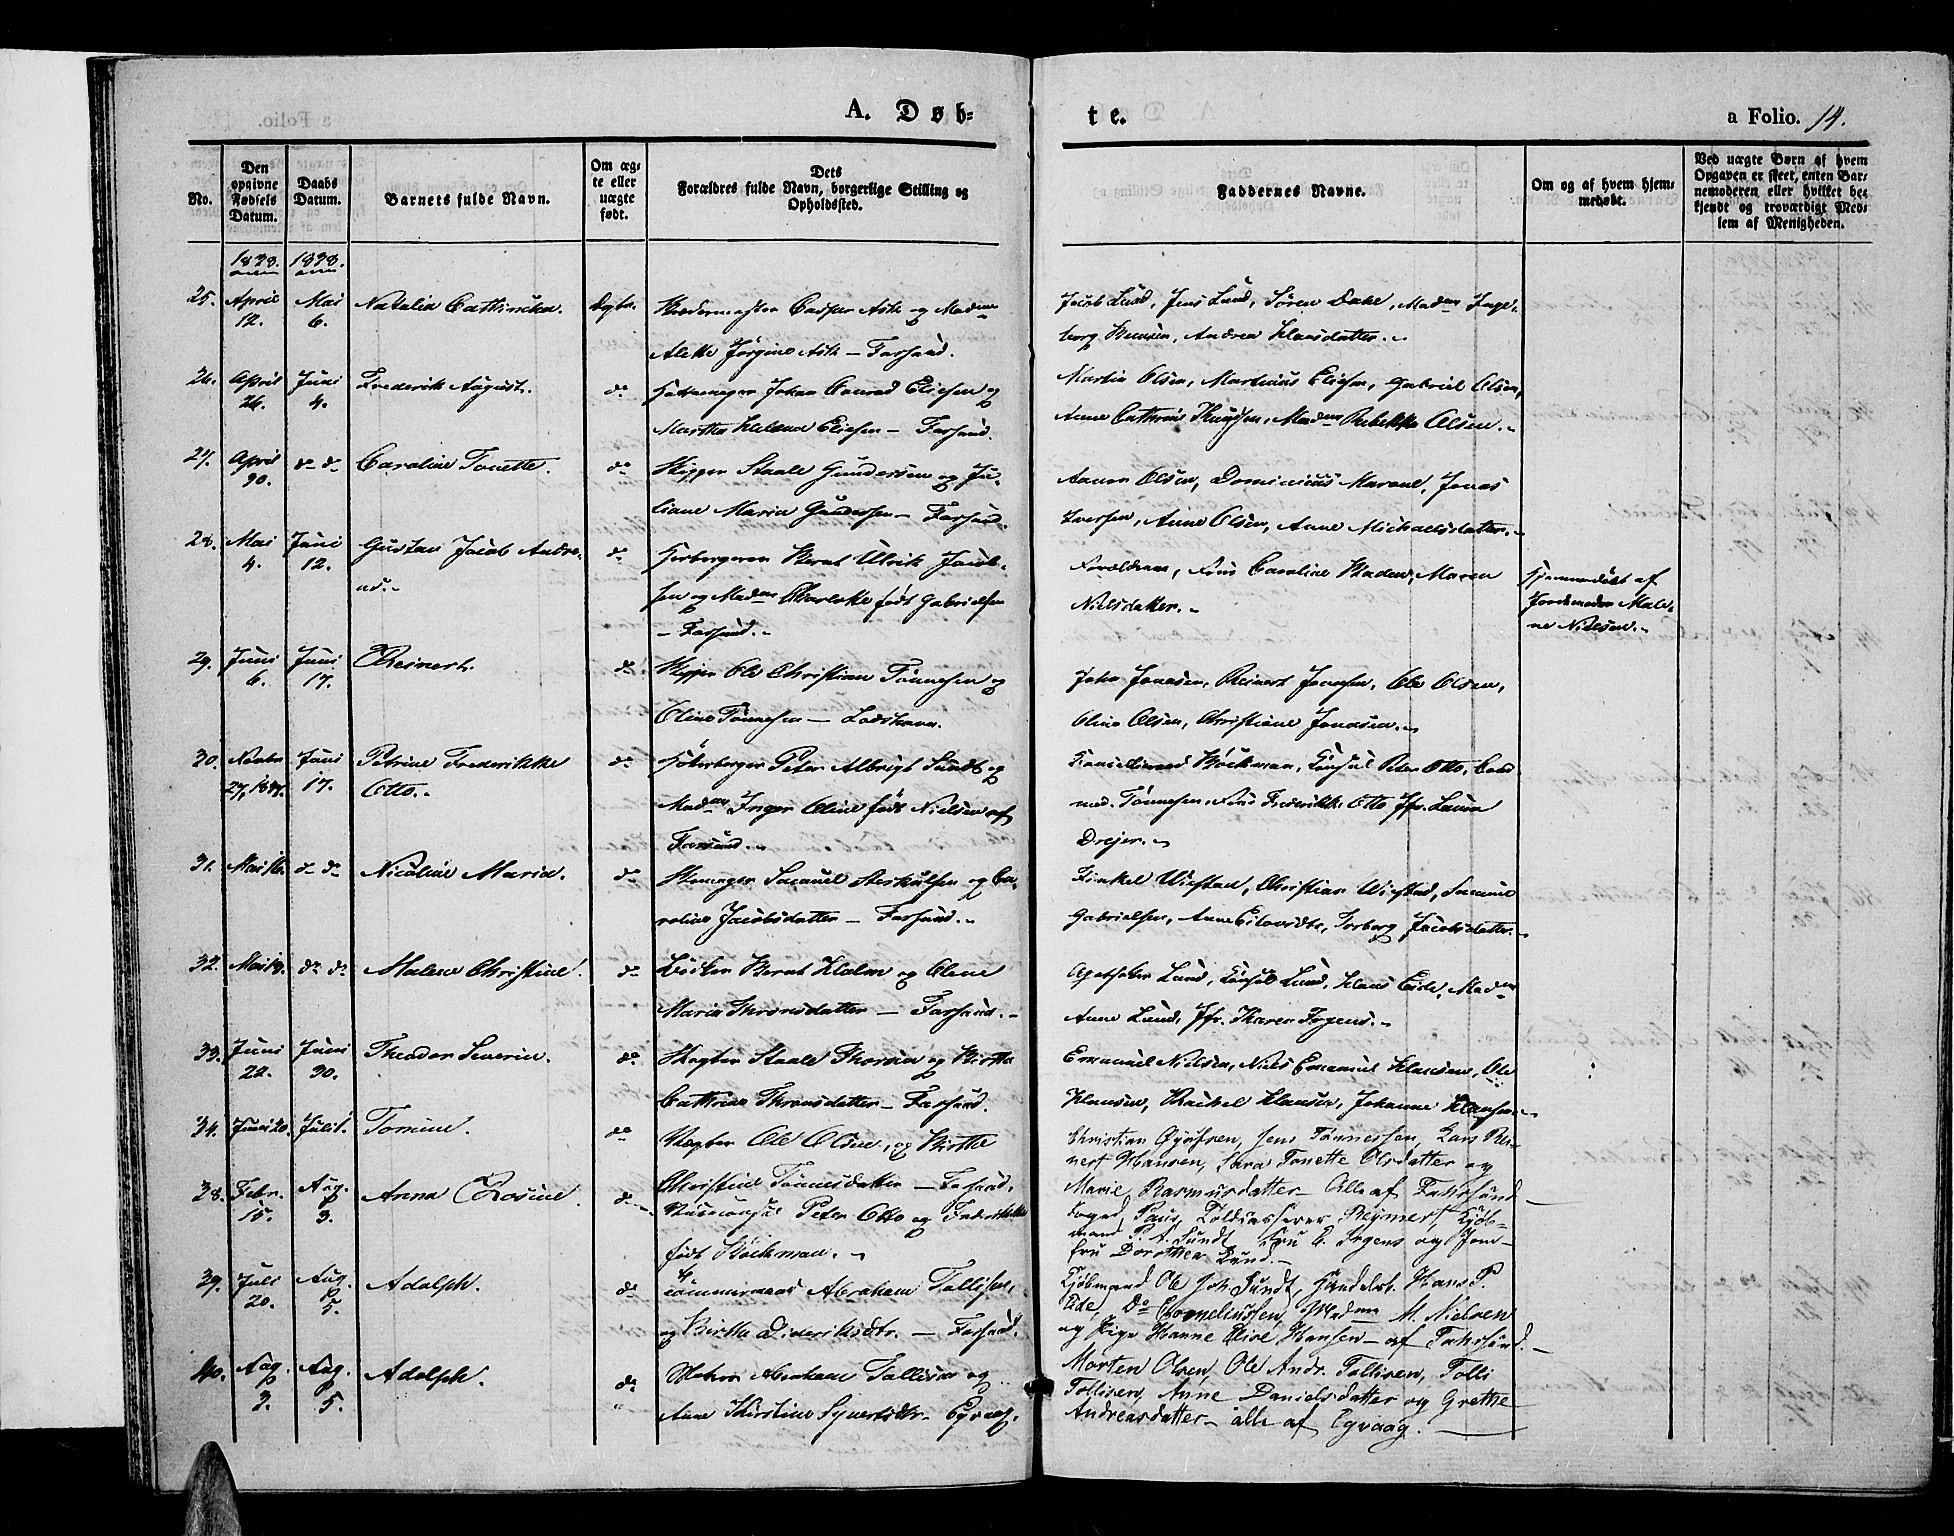 A. Døb-
te.
a Folio. 14.
No.
Den opgivne Fødsels Datum.
Daabs Datum.
Barnets fulde Navn.
Om ægte eller uægte født.
Dets Forældres fulde Navn, borgerlige Stilling og Opholdssted.
Faddernes Navne.
Om og af hvem hjemmedøbt.
Ved uægte Børn af hvem Opgaven er skeet, enten Barnemoderen eller hvilket bekjendt og troværdigt Medlem af Menigheden.
1838. 1838.
25. April 12. Mai 6. Natalia Cathinka. Ægte.
Casper Ask og Madm
Jørgine Ask — Farsund.
Jacob Lund, Jens Lund, Søren Dahe, Madm Inge-
borg Berntsen, Andrea Klausdatter.
26. April 26. Juni 4. Frederik August. do
Johan Conrad Eliesen og
Martha Helene Eliesen — Farsund.
Martin Olsen, Martinius Eliesen, Gabriel Olsen,
Anne Cathrine Knudsen, Madm Rebekka Olsen.
27. April 30. do do Caroline Tonette. do
Skipper Staale Gundersen og Ju-
liane Maria Gundersen — Farsund.
Aanen Olsen, Dominicus Jonas
Iversen, Anne Olsen, Anne Michaelsdatter.
28. Mai 4. Juni 12. Gustav Jacob Andre-
as. do
Bernt Ulrik Jacob-
sen og Madm Charlotte født Gabrielsen
— Farsund.
Forældrene, Frue Caroline Maren
Nielsdatter.
Hjemmedøbt af
Jordemoder Male-
ne Nielsen.
29. Juni 6. Juni 17. Reinert. do
Skipper Ole Christian Tønnesen og
Oline Tønnesen — Lodshavn.
John Jonassen, Reinert Jonassen, Ole Olsen,
Oline Olsen, Christiane Jonassen.
30. Novbr 27, 1837. Juni 17. Petrine Frederikke
Otto. do
Peter Albrigt Sundt og
Madm Inger Oline født Nielsen af
Farsund.
Bøckman, Consul Peter Otto,
Tønnesen, Frue Frederikke Otto Jfr. Laura
Drejer.
31. Mai 16. do do Nicoline Maria. do
Samuel og Ca-
roline Jacobsdatter — Farsund.
Christian Wiestad, Samuel
Gabrielsen, Anne Torborg Jacobsdatter.
32. Mai 19. do do Malene Christine. do
Bødker Bernt og Olene
Maria Thronsdatter — Farsund.
Apotheker Lund, Consul Lund, Klaus Eide, Madm
Anne Lund, Jfr. Karen Irgens.
33. Juni 22. Juni 30. Theodor Severin. do
Vægter Staale og Birthe
Cathrine Thronsdatter — Farsund.
Emanuel Nielsen, Niels Emanuel Klausen, Ole
Klausen, Rachel Klausen, Johanne Klausen.
34. Juni 20. Juli 1. Tomine. do
Vægter Ole Olsen, og Birthe
Christine Tønnesdatter — Farsund.
Christian Jens Tønnessen, Lars Rei-
nert Hansen, Sara Tonette Olsdatter og
Marie Rasmusdatter — Alle af Fahrsund
38. Febr. 15. Aug. 3. Anna Rosine. do
Viceconsul Peter Otto og Frederikke
født Bøckman.
Foged Paus, Toldkasserer Reymert, Kjøb-
mand P. A. Sundt Fru C. Irgens og Jom-
fru Dorothea Lund.
39. Juli 20. Aug. 5. Adolph. do
Tømmermand Abraham Tollisen,
og Birthe Dideriksdtr. — Farsund.
Kjøbmand Ole Joh. Sundt, Handelsb. Hans P.
Eide, Do Cornelinssen, Madm M. Nielsen
og Pige Hanne Elise Hansen — af Fahrsund.
40. Aug. 3. Aug. 5. Adolph. do
Matros Abraham Tollisen og
Ane Kirstine Syvertsdtr. Egvaag.
Morten Olsen, Ole Andr. Tollisen, Tolli
Tollisen, Anne Danielsdatter og Grethe
Andreasdatter — alle af Egvaag.